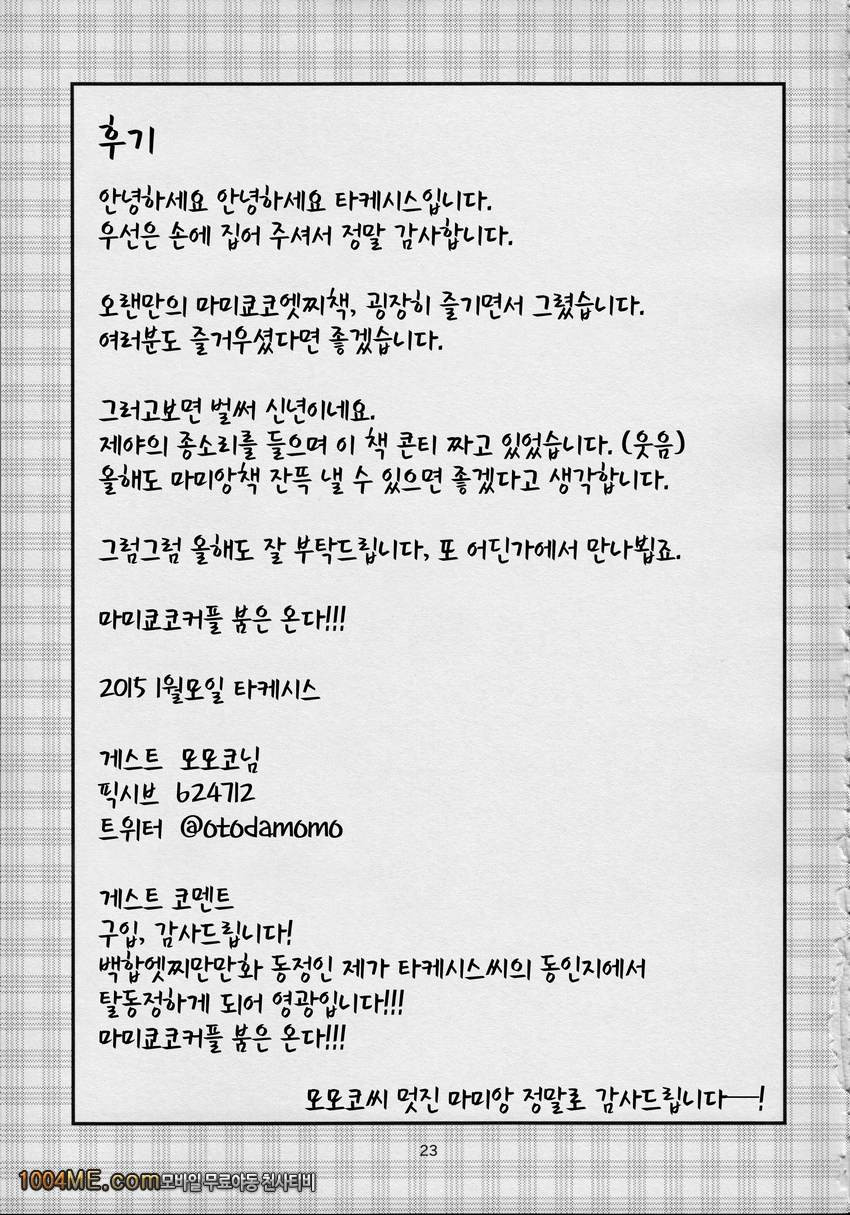 후기
안녕하세요 안녕하세요 타케시스입니다.
우선은 손에 집어 주셔서 정말 감사합니다.
오랜만의 마미쿄코엣찌책, 굉장히 즐기면서 그렸습니다.
여러분도 즐거우셨다면 좋겠습니다.
그러고보면 벌써 신년이네요.
제야의 종소리를 들으며 이 책 콘티 짜고 있었습니다. (웃음)
올해도 마미앙책 잔뜩 낼 수 있으면 좋겠다고 생각합니다.
그럼그럼 올해도 잘 부탁드립니다, 또 어딘가에서 만나뵙죠.
마미쿄코커플 붐은 온다!!!
2015 1월모일 타케시스
게스트 모모코님
픽시브 624712
트위터 @otodamomo
게스트 코멘트
구입, 감사드립니다!
백합엣찌만만화 동정인 제가 타케시스씨의 동인지에서
탈동정하게 되어 영광입니다!!!
마미쿄코커플 붐은 온다!!!
모모코씨 멋진 마미앙 정말로 감사드립니다—!
23
1004ME.com모바일 무료야동 천사티비